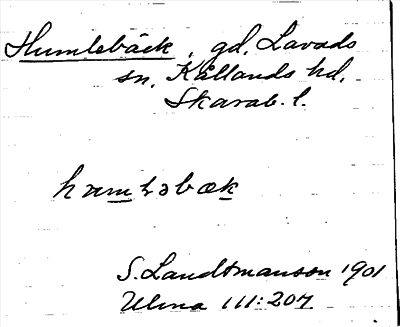 Humlebäck, gd, Lavads
sn, Kållands hd,
Skarab. l.
S. Landtmanson 1901
Ulma 111:207